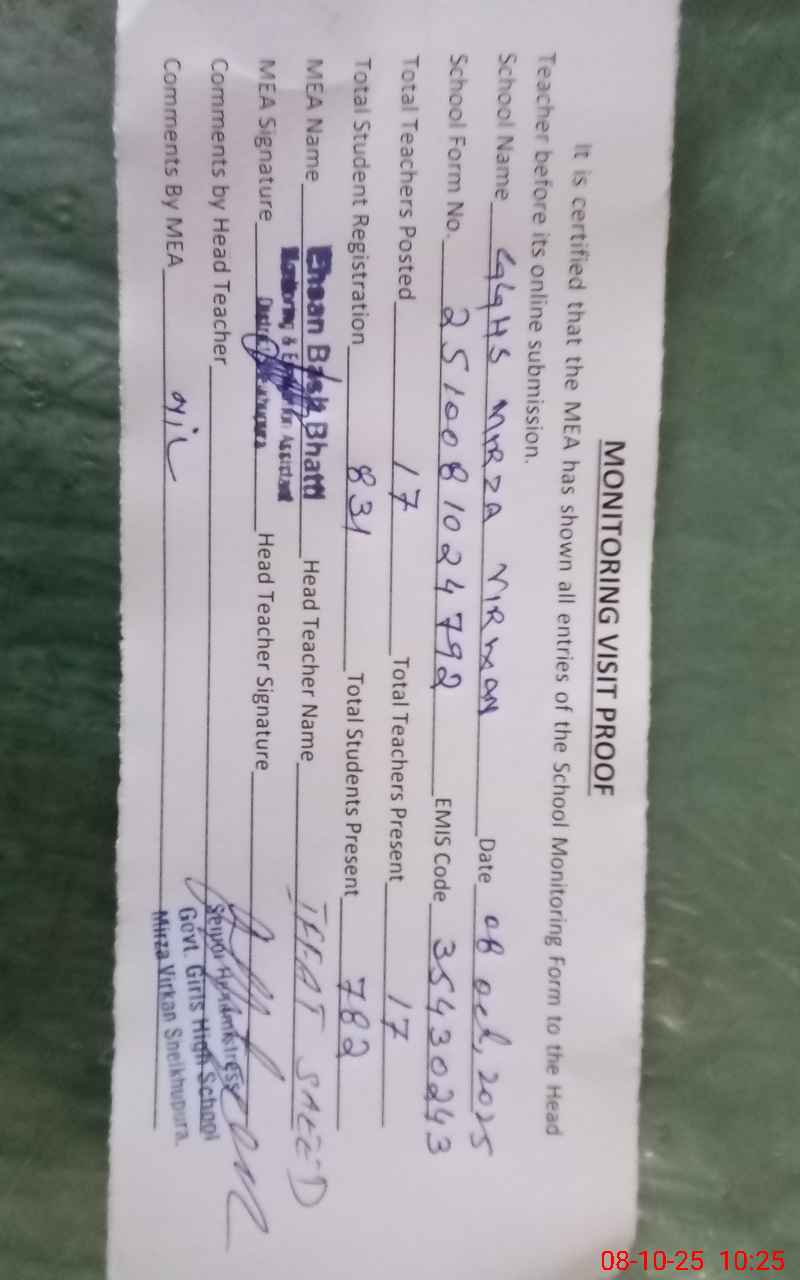 MONITORING VISIT PROOF
It is certified that the MEA has shown all entries of the School Monitoring Form to the Head
Teacher before its online submission.
School Name GGHS MIRZA VIRKAN Date 08 Oct, 2025
School Form No. 2510081024792 EMIS Code 35430243
Total Teachers Posted 17 Total Teachers Present 17
Total Student Registration 831 Total Students Present 782
MEA Name Ehsan Bhatti Head Teacher Name IFFAT SAEED
Monitoring & Assistant
MEA Signature Head Teacher Signature
Comments by Head Teacher
Senior Headmistress
Govt. Girls High School
Comments By MEA Nil
Mirza Virkan Sheikhupura.
08-10-25 10:25